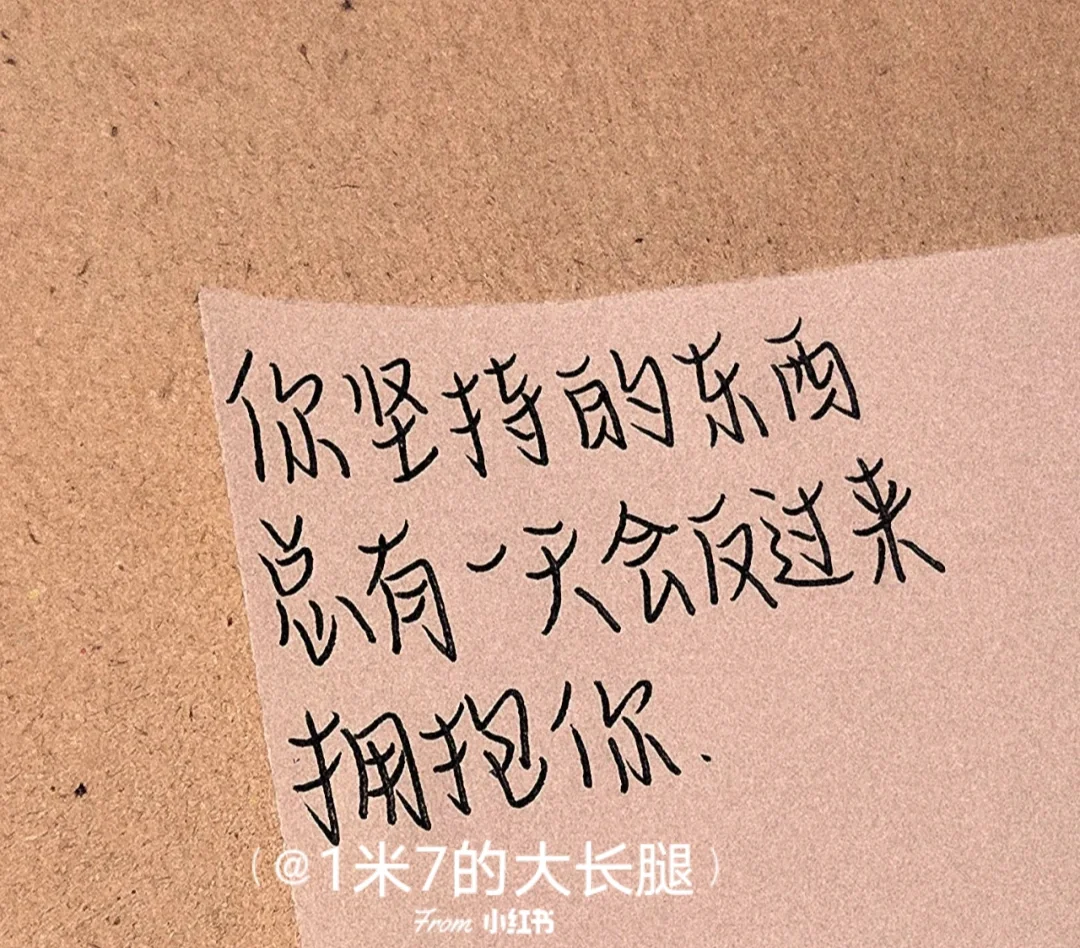 你坚持的东西
总有一天会反过来
拥抱你.
(@1米7的大长腿)
From 小红书